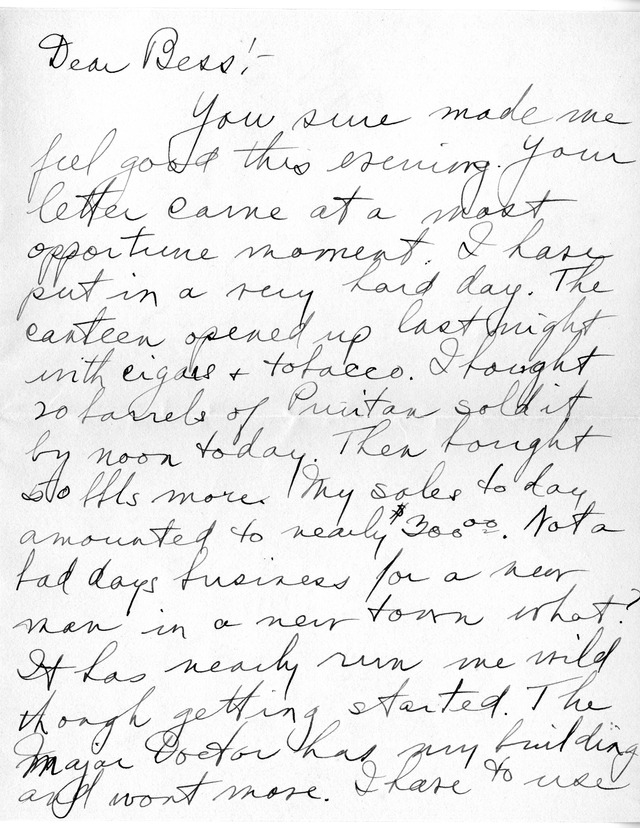 Dear Bess:-
You sure made me
feel good this evening. Your
letter came at a most
opportune moment. I have
put in a very hard day. The
canteen opened up last night
with cigars + tobacco. I bought
20 barrels of Puritan sold it
by noon today. Then bought
50 bbls more. My sales today
amounted to nearly $300.00. Not a
bad days business for a new
man in a new town what?
It has nearly run me wild
though getting started. The
Major Doctor has my building
and wont move. I have to use